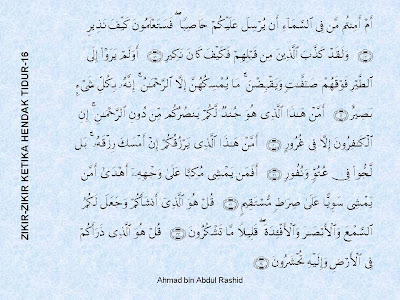 ZIKIR-ZIKIR KETIKA HENDAK TIDUR-16
أَمْ أَمِنتُم مَّن فِى ٱلسَّمَآءِ أَن يُرْسِلَ عَلَيْكُمْ حَاصِبًا ۖ فَسَتَعْلَمُونَ كَيْفَ نَذِيرِ
۝ وَلَقَدْ كَذَّبَ ٱلَّذِينَ مِن قَبْلِهِمْ فَكَيْفَ كَانَ نَكِيرِ ۝ أَوَلَمْ يَرَوْا۟ إِلَى
ٱلطَّيْرِ فَوْقَهُمْ صَـٰٓفَّـٰتٍ وَيَقْبِضْنَ ۚ مَا يُمْسِكُهُنَّ إِلَّا ٱلرَّحْمَـٰنُ ۚ إِنَّهُۥ بِكُلِّ شَىْءٍۭ
بَصِيرٌ ۝ أَمَّنْ هَـٰذَا ٱلَّذِى هُوَ جُندٌ لَّكُمْ يَنصُرُكُم مِّن دُونِ ٱلرَّحْمَـٰنِ ۚ إِنِ
ٱلْكَـٰفِرُونَ إِلَّا فِى غُرُورٍ ۝ أَمَّنْ هَـٰذَا ٱلَّذِى يَرْزُقُكُمْ إِنْ أَمْسَكَ رِزْقَهُۥ ۚ بَل
لَّجُّوا۟ فِى عُتُوٍّ وَنُفُورٍ ۝ أَفَمَن يَمْشِى مُكِبًّا عَلَىٰ وَجْهِهِۦٓ أَهْدَىٰٓ أَمَّن
يَمْشِى سَوِيًّا عَلَىٰ صِرَٰطٍ مُّسْتَقِيمٍ ۝ قُلْ هُوَ ٱلَّذِىٓ أَنشَأَكُمْ وَجَعَلَ لَكُمُ
ٱلسَّمْعَ وَٱلْأَبْصَـٰرَ وَٱلْأَفْـِٔدَةَ ۖ قَلِيلًا مَّا تَشْكُرُونَ ۝ قُلْ هُوَ ٱلَّذِى ذَرَأَكُمْ
فِى ٱلْأَرْضِ وَإِلَيْهِ تُحْشَرُونَ ۝
Ahmad bin Abdul Rashid